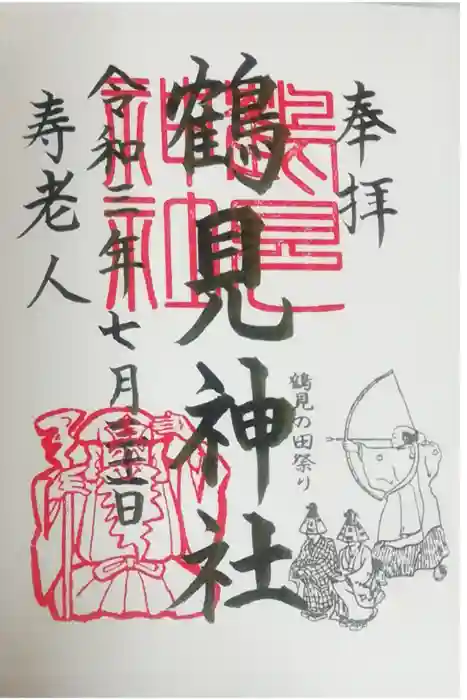 奉拝
鶴見神社
鶴見の田祭り
令和二年七月三十一日
寿老人